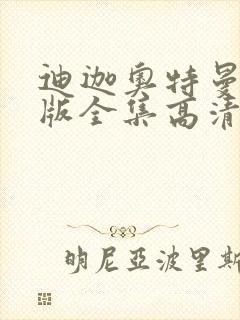 迪迦奥特曼
版全集高清
明尼亞波里斯